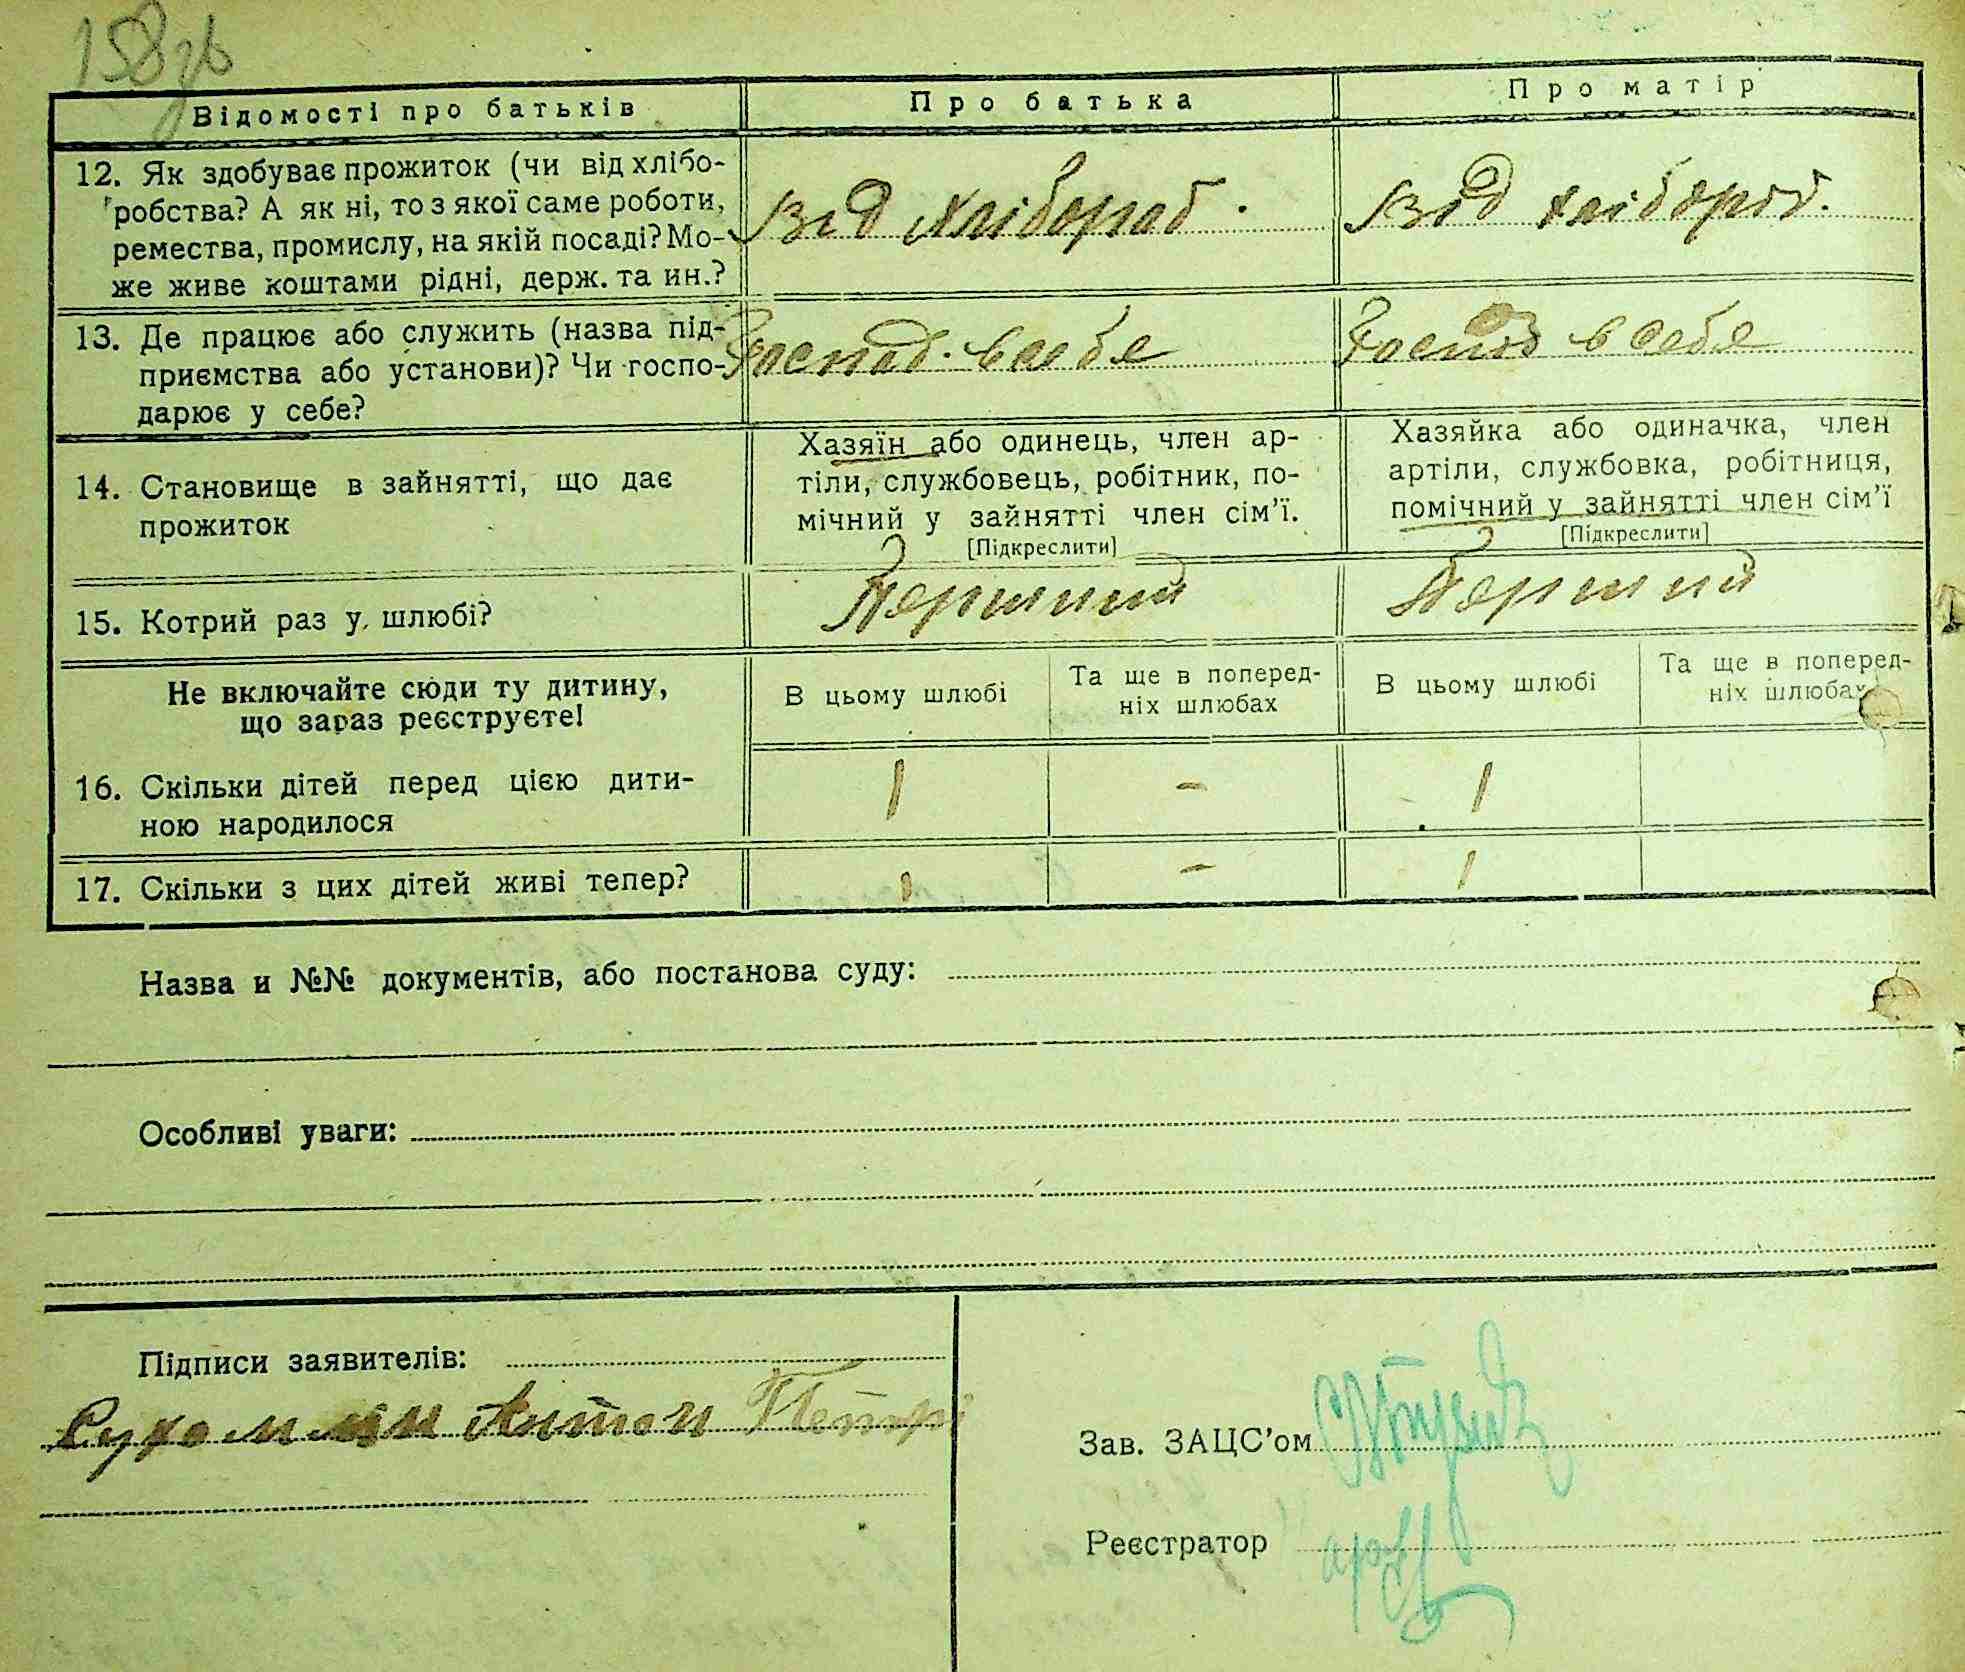 158зв
Відомості про батьків
Про батька
Про матір
12. Як здобуває прожиток (чи від хлібо-
робства? А як ні, то з якої саме роботи,
ремества, промислу, на якій посаді? Мо-
же живе коштами рідні, держ. та ин.?
Від хлібороб.
Від хлібороб.
13. Де працює або служить (назва під-
приємства або установи)? Чи госпо-
дарює у себе?
Господ. в себе
Господ в себе
14. Становище в зайнятті, що дає
прожиток
Хазяїн або одинець, член ар-
тіли, службовець, робітник, по-
мічний у зайнятті член сім’ї.
[Підкреслити]
Хазяйка або одиначка, член
артіли, службовка, робітниця,
помічний у зайнятті член сім’ї
[Підкреслити]
15. Котрий раз у шлюбі?
Перший
Перший
Не включайте сюди ту дитину,
що зараз реєструєте!
В цьому шлюбі
Та ще в поперед-
ніх шлюбах
В цьому шлюбі
Та ще в поперед-
ніх шлюбах
16. Скільки дітей перед цією дити-
ною народилося
1 - 1
17. Скільки з цих дітей живі тепер?
1 - 1
Назва и №№ документів, або постанова суду:
Особливі уваги:
Підписи заявителів:
Сухомлин Антон Петрі
Зав. ЗАЦС’ом
Реєстратор